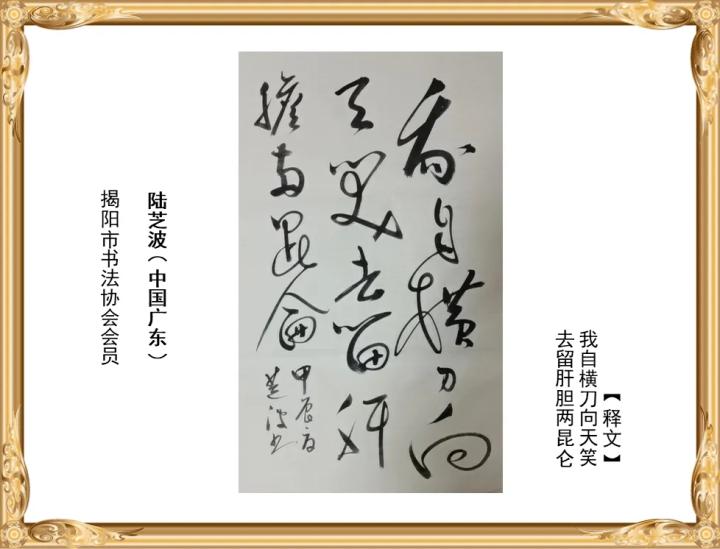 【释文】
我自横刀向天笑
去留肝胆两昆仑
我自横刀向
天笑去留肝
膽两昆侖
甲辰夏
芝波书
陆芝波（中国广东）
揭阳市书法协会会员